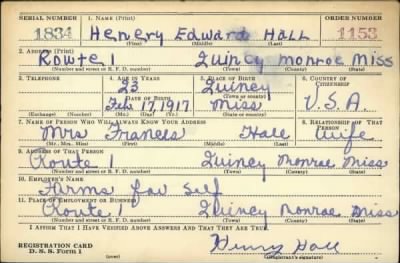 SERIAL NUMBER 1. NAME (Print) ORDER NUMBER
1834 Henery Edward Hall 1153
(First) (Middle) (Last)
2. ADDRESS (Print)
Route 1 Quincy Monroe Miss
(Number and street or R. F. D. number) (Town) (County) (State)
3. TELEPHONE 4. AGE IN YEARS 5. PLACE OF BIRTH 6. COUNTRY OF CITIZENSHIP
23 Quincy
DATE OF BIRTH (Town or county)
Feb 17 1917 Miss U.S.A.
(Exchange) (Number) (Mo.) (Day) (Yr.) (State or country)
7. NAME OF PERSON WHO WILL ALWAYS KNOW YOUR ADDRESS 8. RELATIONSHIP OF THAT PERSON
Mrs Frances Hall Wife
(Mr., Mrs., Miss) (First) (Middle) (Last)
9. ADDRESS OF THAT PERSON
Route 1 Quincy Monroe Miss
(Number and street or R. F. D. number) (Town) (County) (State)
10. EMPLOYER'S NAME
Farms for Self
11. PLACE OF EMPLOYMENT OR BUSINESS
Route 1 Quincy Monroe Miss
(Number and street or R. F. D. number) (Town) (County) (State)
I AFFIRM THAT I HAVE VERIFIED ABOVE ANSWERS AND THAT THEY ARE TRUE.
REGISTRATION CARD
D. S. S. Form 1 Henry Hall
(Registrant's signature)